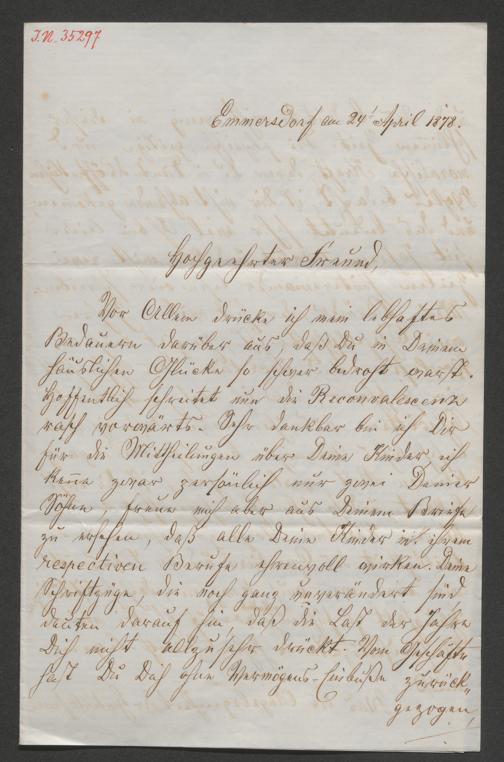 I.N. 35297
Emmersdorf am 24t April 1878.
Hochgeehrter Freund,
Vor Allem drücke ich mein lebhaftes
Bedauern darüber aus, daß Du in Deinem
häuslichen Glücke so schwer bedroht warst.
Hoffentlich schreitet nun die Reconvalescenz
rasch vorwärts. Sehr dankbar bin ich Dir
für die Mittheilungen über Deine Kinder, ich
kenne zwar persönlich nur zwei Deiner
Söhne, freue mich aber aus Deinem Briefe
zu ersehen, daß alle Deine Kinder in ihrem
respectiven Berufe ehrenvoll wirken. Deine
Schriftzüge, die noch ganz unverändert sind
deuten darauf hin, daß die Last der Jahre
Dich nicht allzusehr drückt. Vom Geschäfte
hast Du Dich ohne Vermögens-Einbuße zurück„
gezogen,